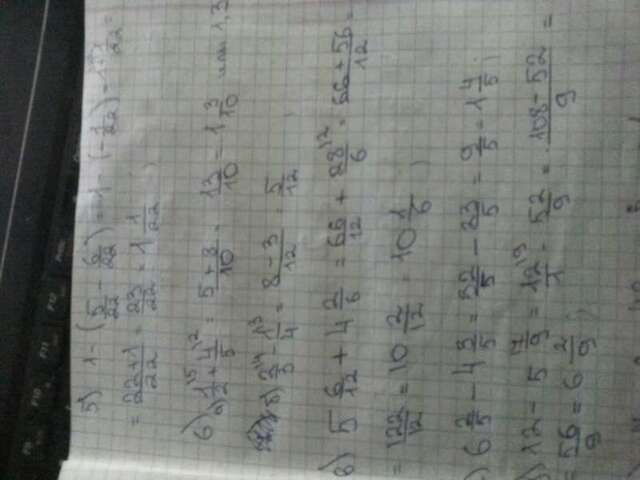 5) 1 - (5/22 - 6/22) = 1 - (-1/22) = 
= 22+1/22 = 23/22 = 1 1/22
6) a) 1/2 + 4/5 = 5+8/10 = 13/10 = 1 3/10 или 1,3
2/3 - 1/4 = 8-3/12 = 5/12
в) 5 6/12 + 4 2/6 = 66/12 + 28/6 = 66+56/12 =
= 122/12 = 10 2/12 = 10 1/6
6 2/5 - 4 3/5 = 32/5 - 23/5 = 9/5 = 1 4/5
12 - 5 7/9 = 12/1 - 52/9 = 108-52/9 =
= 56/9 = 6 2/9